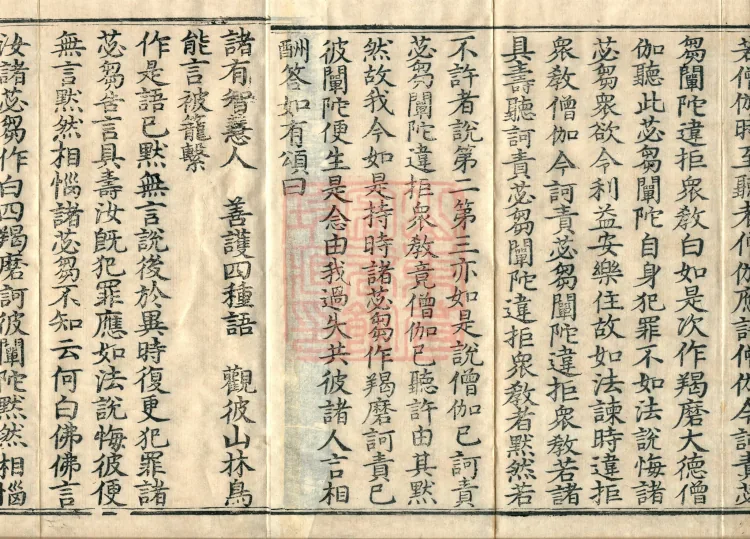 若僧伽時至聽者僧伽應許僧伽今訶責苾
芻闡陀違拒衆教白如是次作羯磨大德僧
伽聽此苾芻闡陀自身犯罪不如法說悔諸
苾芻衆欲令利益安樂住故如法諫時違拒
衆教僧伽今訶責苾芻闡陀違拒衆教若諸
具壽聽訶責苾芻闡陀違拒衆教者默然若
不許者說第二第三亦如是說僧伽已訶責
苾芻闡陀違拒衆教竟僧伽已聽許由其默
然故我今如是持時諸苾芻作羯磨訶責已
彼闡陀便生是念由我過失共彼諸人言相
酬答如有頌曰
諸有智慧人 善護四種語 觀彼山林鳥
能言被籠繫
作是語已默無言說後於異時復更犯罪諸
苾芻告言具壽汝既犯罪應如法說悔彼便
無言默然相惱諸苾芻不知云何白佛佛言
汝諸苾芻作白四羯磨訶彼闡陀默然相惱